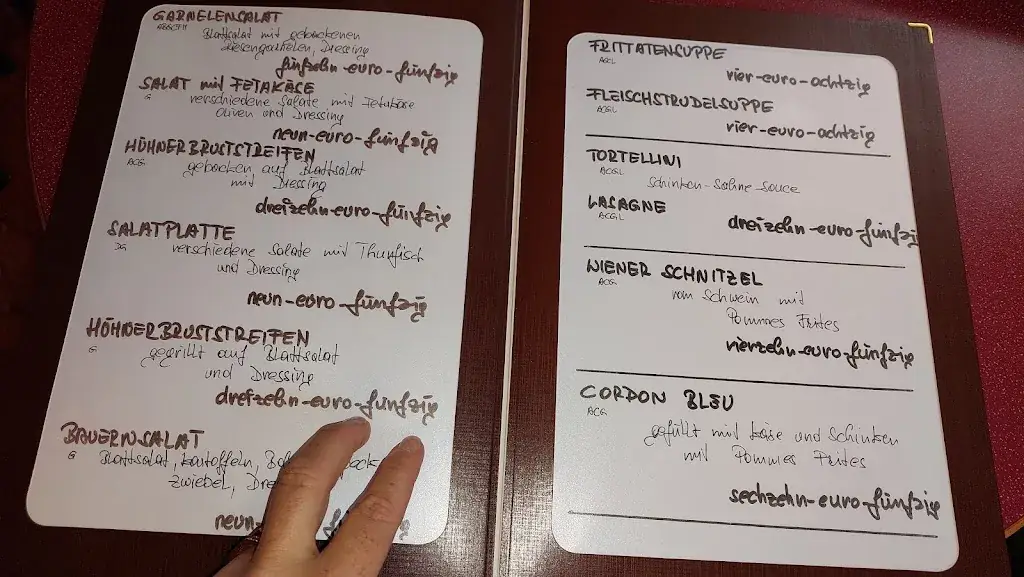 GARNELENSALAT
Blattsalat mit gebackenen
Riesengarnelen, Dressing
fünfzehn-euro-fünfzig
SALAT mit FETAKÄSE
G
verschiedene Salate mit Fetakäse
Oliven und Dressing
neun-euro-fünfzig
HÜHNERBRUSTSTREIFEN
ACG
gebacken auf Blattsalat
mit Dressing
dreizehn-euro-fünfzig
SALATPLATTE
DG
verschiedene Salate mit Thunfisch
und Dressing
neun-euro-fünfzig
HÜHNERBRUSTSTREIFEN
G
gegrillt auf Blattsalat
und Dressing
dreizehn-euro-fünfzig
BAUERNSALAT
G
Blattsalat, Kartoffeln,
Zwiebel,
FRITTATENSUPPE
ACL
vier-euro-achtzig
FLEISCHSTRUDELSUPPE
ACGL
vier-euro-achtzig
TORTELLINI
ACGL
Schinken-Sahne-Souce
LASAGNE
ACGL
dreizehn-euro-fünfzig
WIENER SCHNITZEL
ACG
vom Schwein mit
Pommes Frites
vierzehn-euro-fünfzig
CORDON BLEU
ACG
gefüllt mit Käse und Schinken
mit Pommes Frites
sechzehn-euro-fünfzig